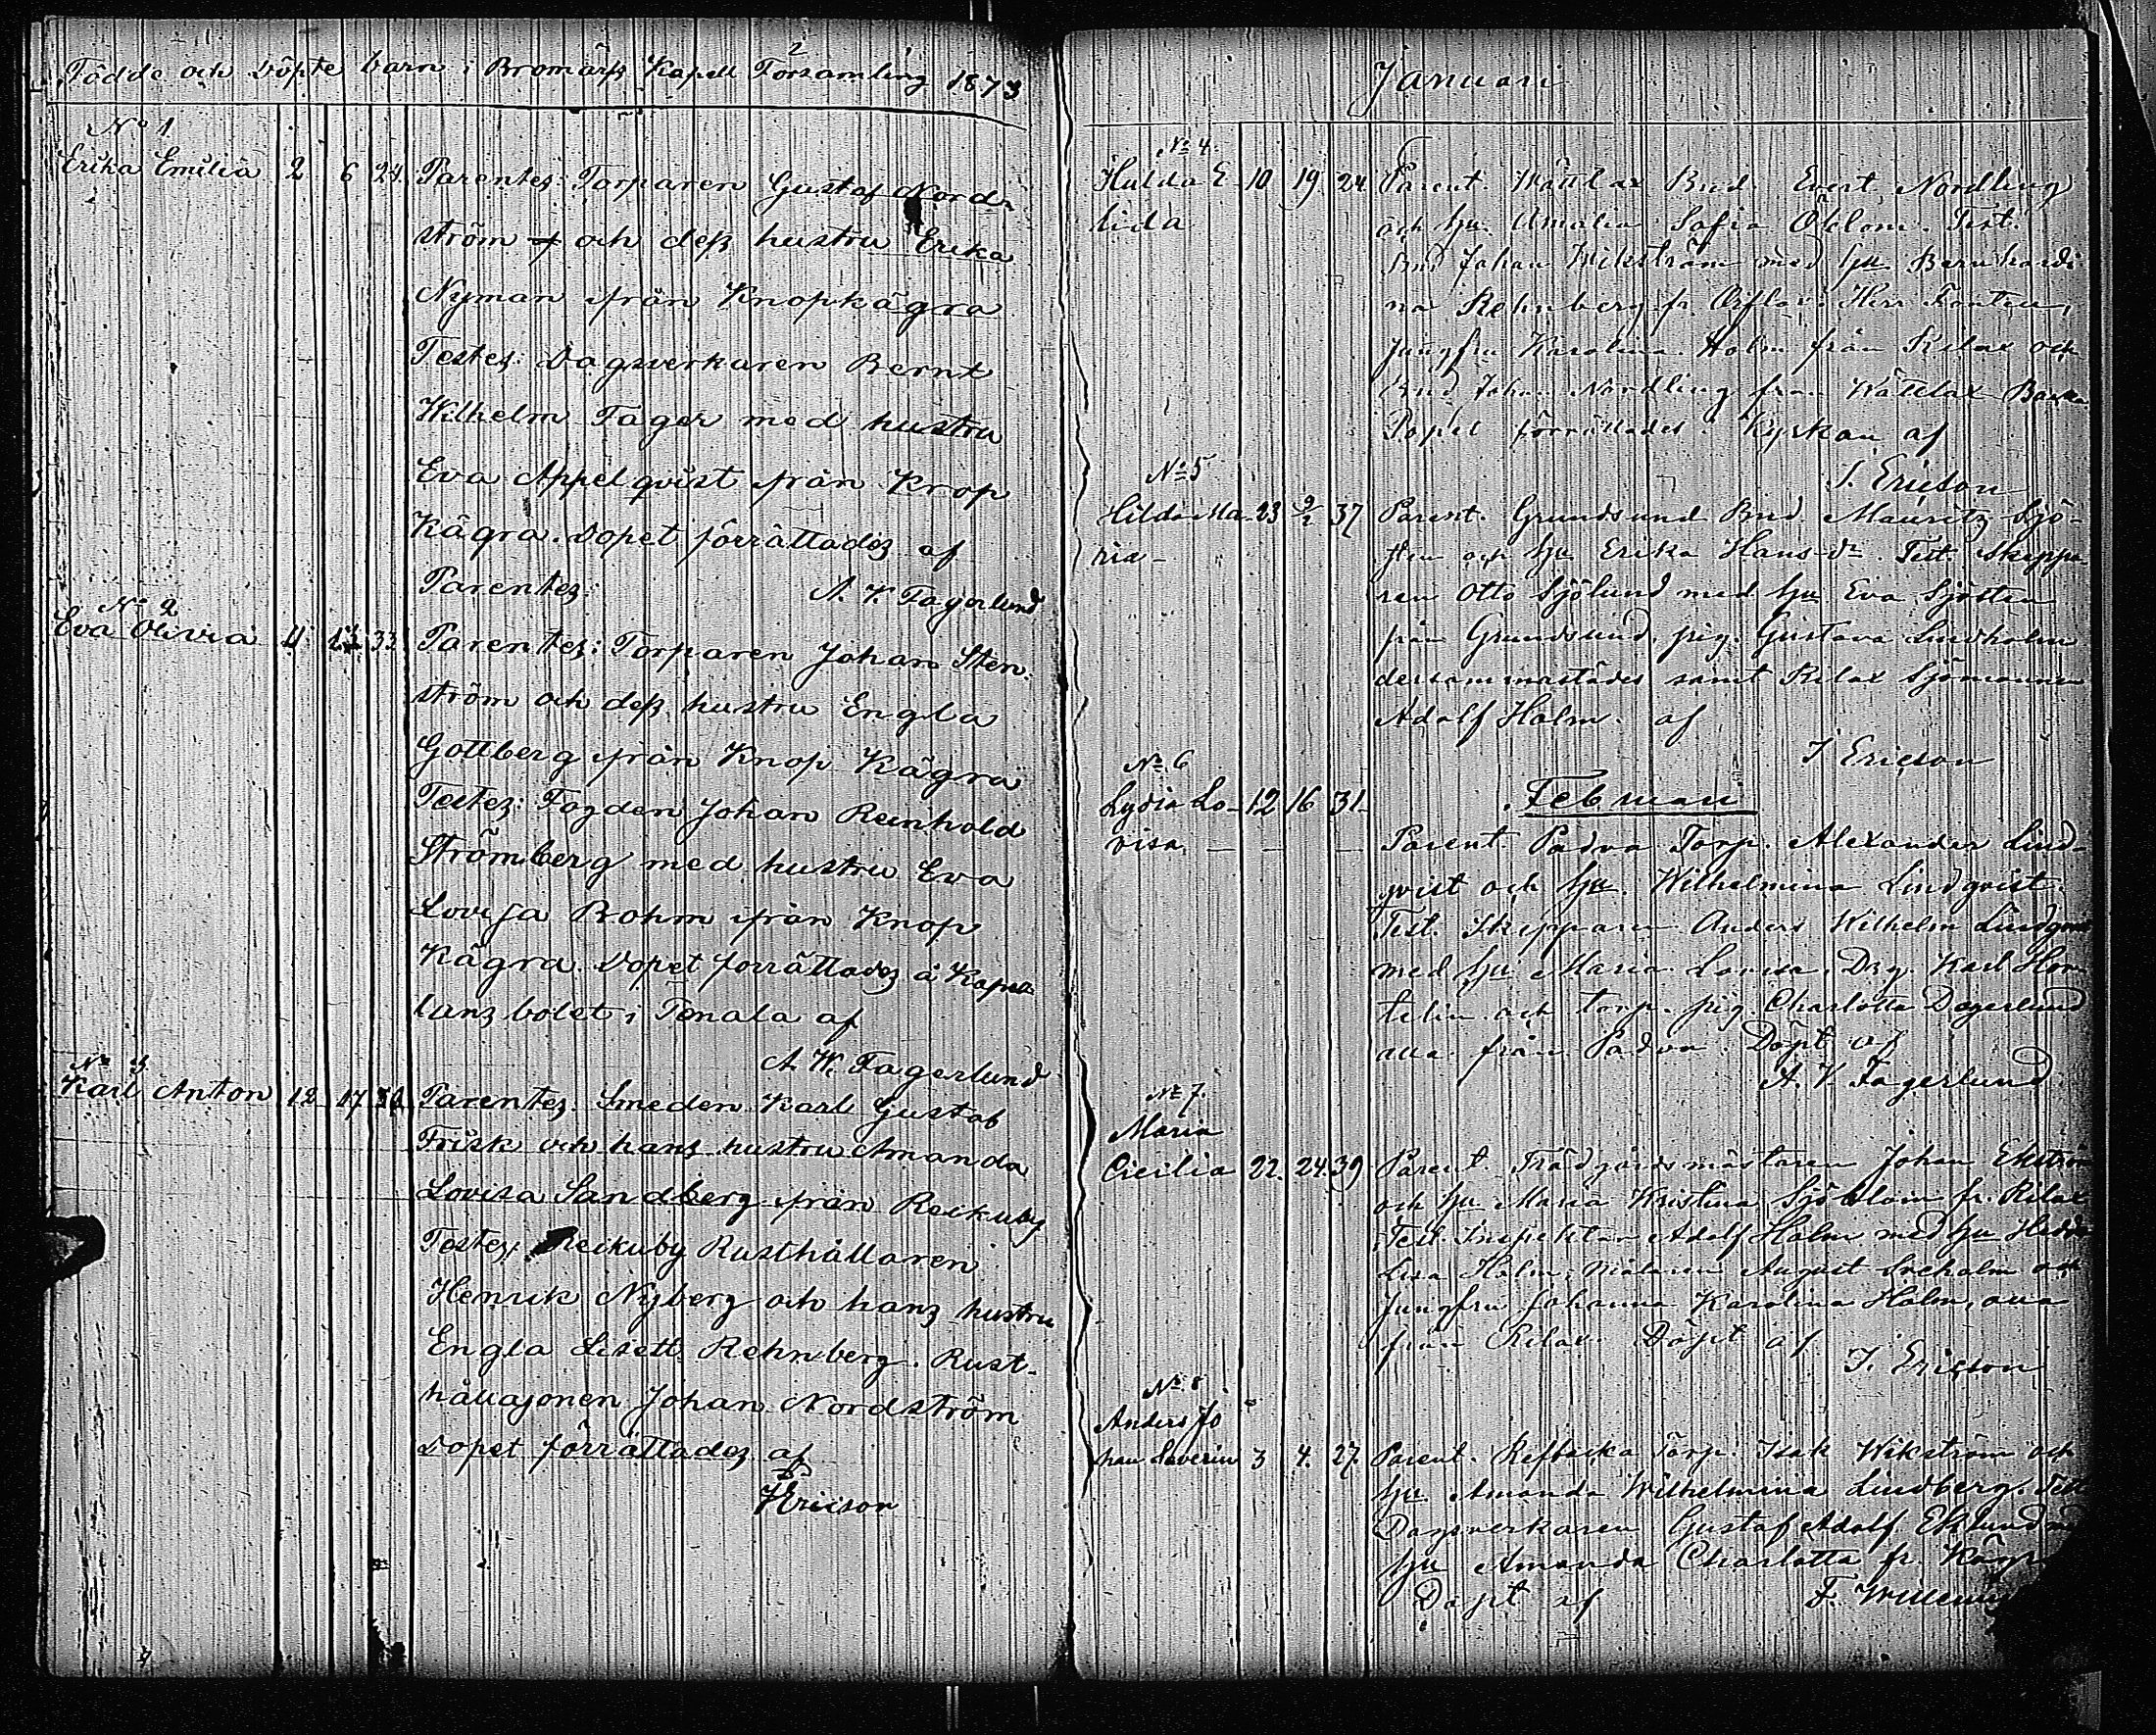 2
Födde och döpte barn i Bromarfs Kapell Församling 1873
No 1
Erika Emilia 2 6 24 Parentes: Torparen Gustaf Nord-
ström och dess hustru Erika
Nyman från Knopkägra
Testes: Dagsverkaren Bernt
Wilhelm Fager med hustru
Eva Appelqvist från Knop
Kägra. Dopet förrättades af
Parentes: A. V. Fagerlund
No 2
Eva Olivia 4 33 Parentes: Torparen Johan Sten-
ström och dess hustru Engla
Gottberg från Knop Kägra
Testes: Fogden Johan Reinhold
Strömberg med hustru Eva
Lovisa Bohm från Knop
Kägra. Dopet förrättades å Kapel
lansbolet i Tenala af
A. W. Fagerlund
No 3
Karl Anton 12 17 Parentes: Smeden Karl Gustaf
Frisk och hans hustru Amanda
Lovisa Sandberg från Reikuby
Testes: Reikuby Rusthållaren
Henrik Nyberg och hans hustru
Engla Lisett Rehnberg. Rust-
hållasonen Johan Nordström
Dopet förrättades af
J Ericson
Januari
No 4.
Hulda E 10 19 24 Parent Wättlax Bnd. Evert Nordling
lida och hu Amalia Sofia Öblom. Test.
Bnd Johan Wikström med hu Bernhardi
na Rehnberg fr.
Jungfru Karolina Holm från Rilax och
Bnd Johan Nordling från Wättlax
Dopet förrättades i Kyrkan af
J. Ericson
No 5
Hilda Ma 23 9/2 37 Parent. Grundsund Bnd. Mauritz Sjö-
ria - sten och hu Erika Hansdr. Test. Skeppa-
ren Otto Sjölund med hu Eva Sjösten
från Grundsund, pig. Gustava Lindholm
dersammastädes samt Rilax Sjömannen
Adolf Holm. af
J Ericson
No 6
Februari
Lydia Lo- 12 16 31
visa Parent. Padva Torp. Alexander Lind-
qvist och hu. Wilhelmina Lindqvist.
Test. Skepparen Anders Wilhelm Lindqvist
med hu Maria Lovisa, Drg. Karl Hon
telin och torp. pig Charlotta Dagerlund
alla från Padva. Döpt af
A. V. Fagerlund
No 7.
Maria
Cicilia 22. 24. 39 Parent. Trädgårdsmästaren Johan Ekström
och hu Maria Kristina Sjöblom fr. Rilax
Test. Inspektor Adolf Holm med hu Hedda
Lisa Holm, Målaren August Soeholm och
Jungfru Johanna Karolina Holm, alla
från Rilax. Döpt af
J. Ericson
No 8
Anders Jo
han Severin 3 4. 27. Parent. Refbacka Torp. Isak Wikström och
hu. Amanda Wilhelmina Lindberg. Test
Dagsverkaren Gustaf Adolf Eklund
hu Amanda Charlotta fr. Kägra
Döpt af